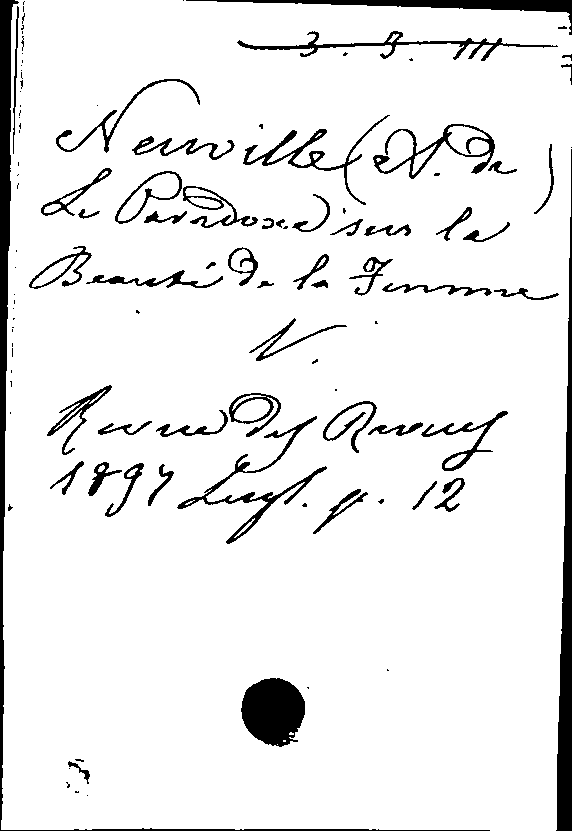 3. 3. III
Neuville (A. de)
Le Paradoxe sur la
Beauté de la Femme
V.
Revue des Revues
1897 p. 12